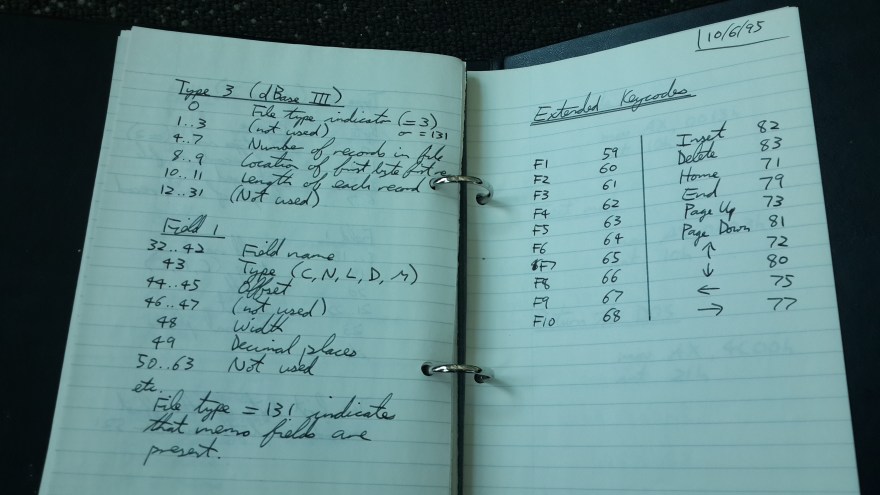 Type 3 (dBase III)
0 File type indicator (=3)
or =131
1..3 (not used)
4..7 Number of records in file
8..9 Location of first byte first
10..11 Length of each record
12..31 (Not used)
Field 1
32..42 Field name
43 Type (C, N, L, D, M)
44..45 Offset
46..47 (not used)
48 Width
49 Decimal places
50..63 Not used
etc.
File type = 131 indicates
that memo fields are
present.
10/6/95
Extended Keycodes
F1 59 Insert 82
F2 60 Delete 83
F3 61 Home 71
F4 62 End 79
F5 63 Page Up 73
F6 64 Page Down 81
F7 65 ↑ 72
F8 66 ↓ 80
F9 67 ← 75
F10 68 → 77